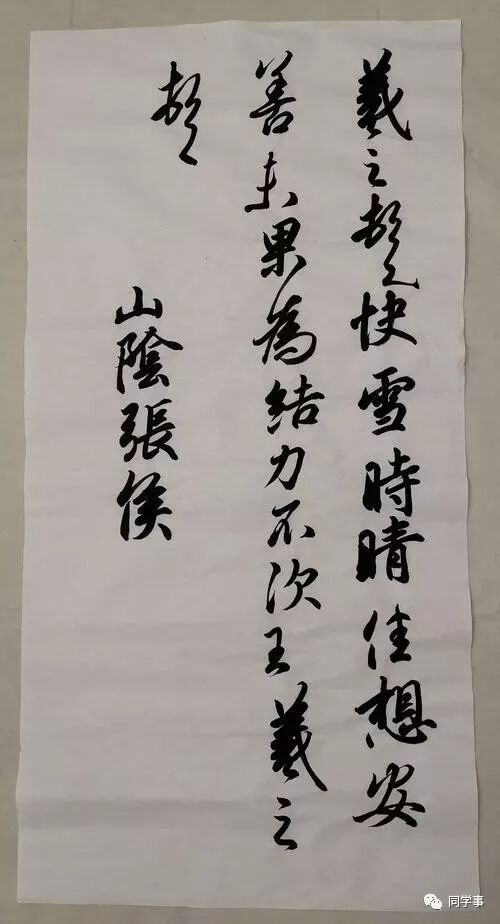 羲之頓首快雪時晴佳想安
善未果為結力不次王羲之
頓首
山陰張侯
同学事